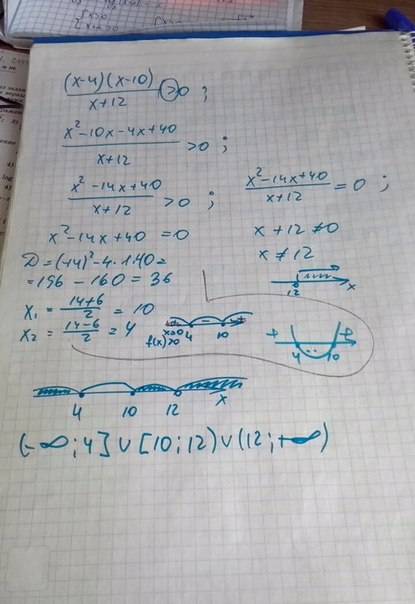 (x-4)(x-10)/x+12 >0 ;
x²-10x-4x+40/x+12 >0 ;
x²-14x+40/x+12 >0 ; x²-14x+40/x+12 =0 ;
x²-14x+40 =0 x +12 ≠0
D=(-14)²-4·1·40= x ≠12
=196-160=36 12 x
x₁=14+6/2=10
x₂=14-6/2=4
x>0 4 - 10 +
f(x)>0
+ 4 10 +
4 10 12 x
(-∞;4]∪[10;12)∪(12;+∞)